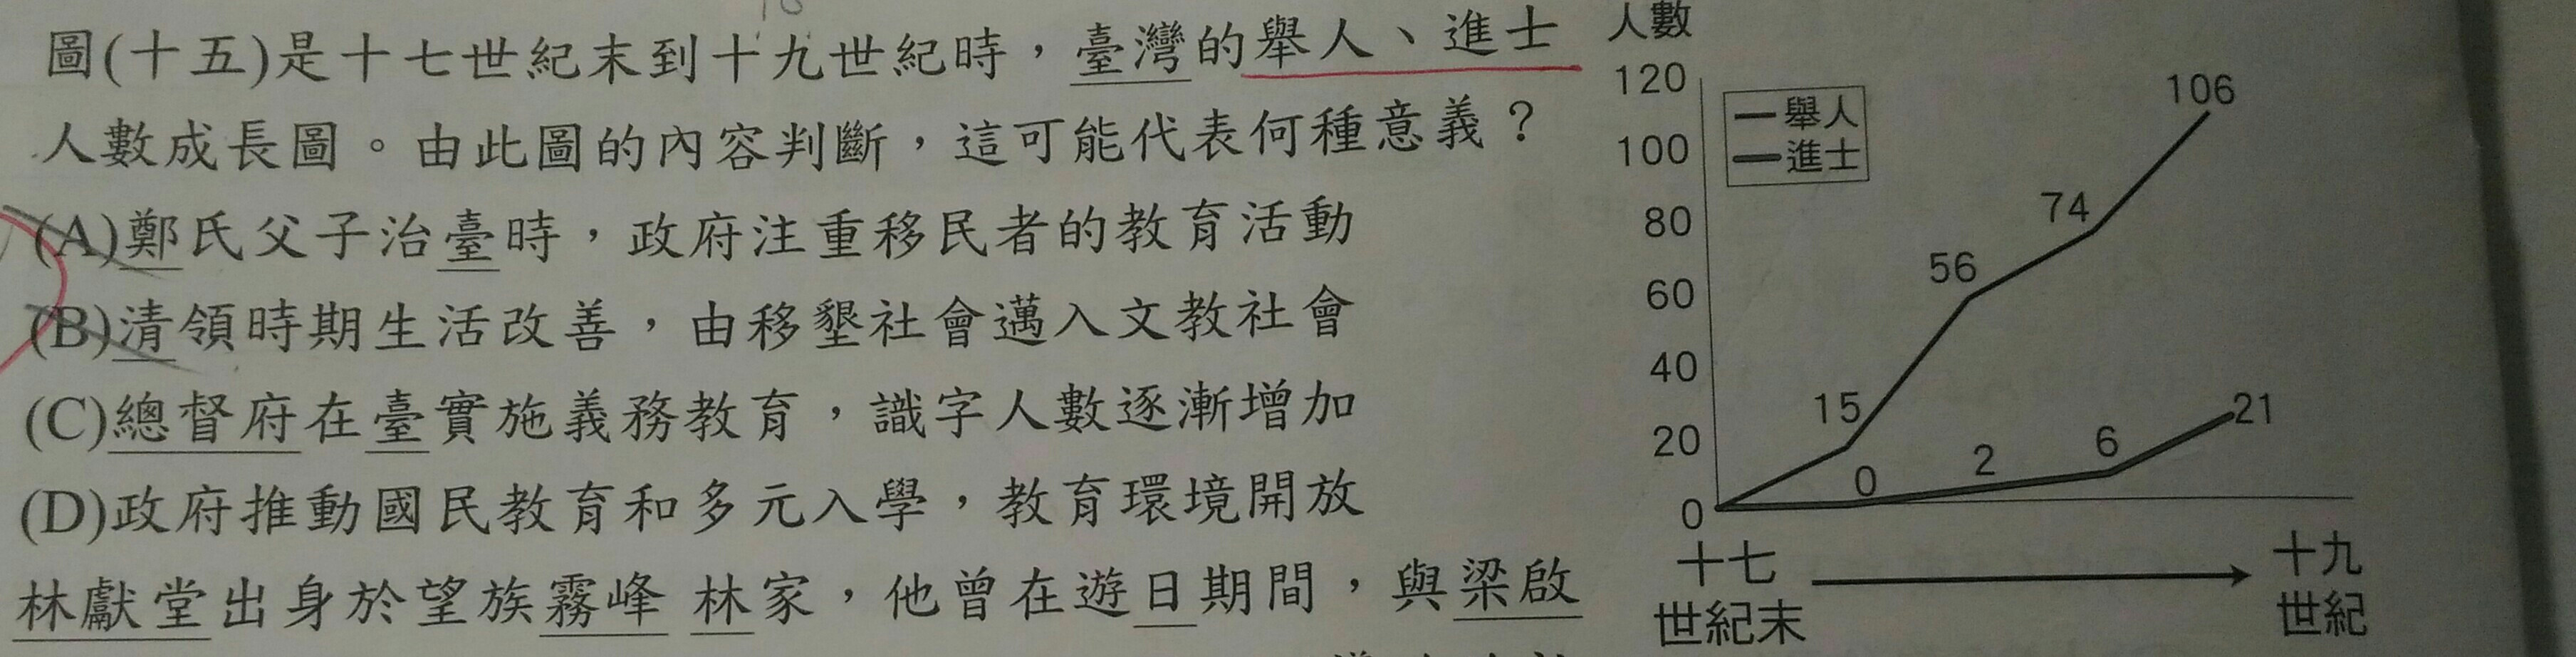 圖(十五)是十七世紀末到十九世紀時，臺灣的舉人、進士
人數成長圖。由此圖的內容判斷，這可能代表何種意義？
(A)鄭氏父子治臺時，政府注重移民者的教育活動
(B)清領時期生活改善，由移墾社會邁入文教社會
(C)總督府在臺實施義務教育，識字人數逐漸增加
(D)政府推動國民教育和多元入學，教育環境開放
林獻堂出身於望族霧峰林家，他曾在遊日期間，與梁啟
人數
120
100
80
60
40
20
0
舉人
進士
15
56
74
106
0
2
6
21
十七
世紀末
十九
世紀